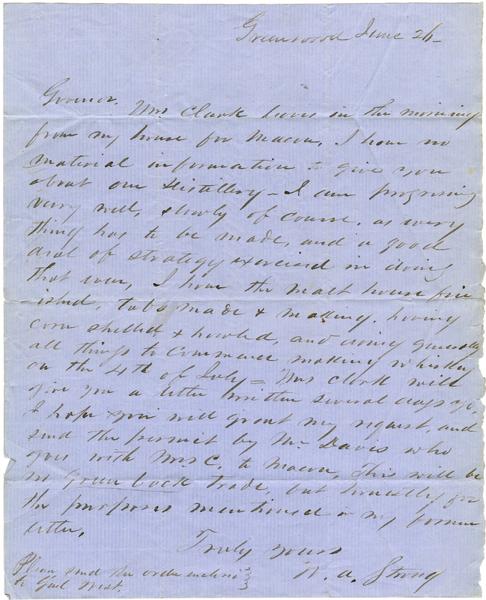 Greenwood June 26
Govenor, Mrs Clark leaves in the morning
from my house for Macon, I have no
material information to give you
about our Distillery - I am progressing
very well, slowly of course, as every
thing has to be made, and a good
deal of strategy exercised in doing
that even, I have the malt house fin
-ished, tubs made & making, having
corn shelled & hauled, and doing generally
all things to commence making whiskey
on the 4th of July = Mrs Clark will
give you a letter written several days ago,
I hope you will grant my request, and
send the permit by Mr Davis who
goes with Mrs C. to Macon, This will be
no green back trade, but honestly for
the purposes mentioned in my former
letter,
Truly yours
W. A. Strong
Please send the order enclosed
to Gail West.